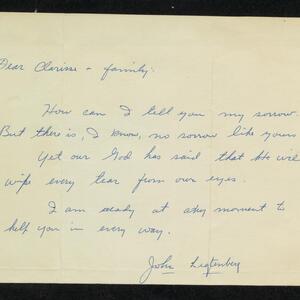 Dear Clarisse + family:
How can I tell you my sorrow.
But there is, I know, no sorrow like yours
Yet our God has said that He will
wipe every tear from our eyes.
I am ready at any moment to
help you in every way.
John Ligtenberg